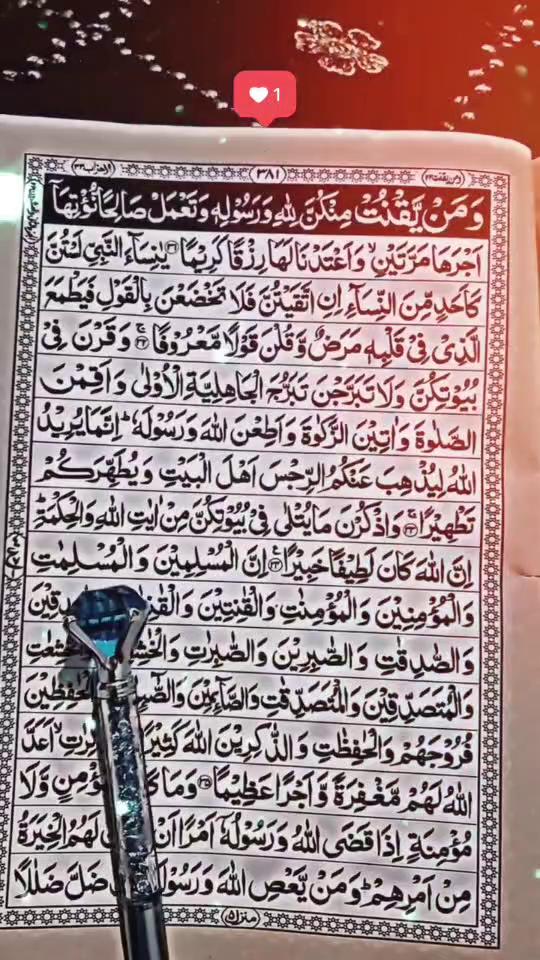 1
ومن یقنت ۲۲
۳۸۱
الاحزاب ۳۳
وَمَنْ يَّقْنُتْ مِنْكُنَّ لِلّٰهِ وَرَسُوْلِهٖ وَتَعْمَلْ صَالِحًا نُّؤْتِهَآ
اَجْرَهَا مَرَّتَيْنِ ۙ وَاَعْتَدْنَا لَهَا رِزْقًا كَرِيْمًا ۝۳۱ يٰنِسَآءَ النَّبِيِّ لَسْتُنَّ
كَاَحَدٍ مِّنَ النِّسَآءِ اِنِ اتَّقَيْتُنَّ فَلَا تَخْضَعْنَ بِالْقَوْلِ فَيَطْمَعَ
الَّذِيْ فِيْ قَلْبِهٖ مَرَضٌ وَّقُلْنَ قَوْلًا مَّعْرُوْفًا ۝۳۲ وَقَرْنَ فِيْ
بُيُوْتِكُنَّ وَلَا تَبَرَّجْنَ تَبَرُّجَ الْجَاهِلِيَّةِ الْاُوْلٰى وَاَقِمْنَ
الصَّلٰوةَ وَاٰتِيْنَ الزَّكٰوةَ وَاَطِعْنَ اللّٰهَ وَرَسُوْلَهٗ ؕ اِنَّمَا يُرِيْدُ
اللّٰهُ لِيُذْهِبَ عَنْكُمُ الرِّجْسَ اَهْلَ الْبَيْتِ وَيُطَهِّرَكُمْ
تَطْهِيْرًا ۝۳۳ وَاذْكُرْنَ مَا يُتْلٰى فِيْ بُيُوْتِكُنَّ مِنْ اٰيٰتِ اللّٰهِ وَالْحِكْمَةِ ؕ
اِنَّ اللّٰهَ كَانَ لَطِيْفًا خَبِيْرًا ۝۳۴ اِنَّ الْمُسْلِمِيْنَ وَالْمُسْلِمٰتِ
وَالْمُؤْمِنِيْنَ وَالْمُؤْمِنٰتِ وَالْقٰنِتِيْنَ
وَالصّٰدِقٰتِ وَالصّٰبِرِيْنَ وَالصّٰبِرٰتِ
وَالْمُتَصَدِّقِيْنَ وَالْمُتَصَدِّقٰتِ وَالصَّآئِمِيْنَ
فُرُوْجَهُمْ وَالْحٰفِظٰتِ وَالذّٰكِرِيْنَ اللّٰهَ اَعَدَّ
اللّٰهُ لَهُمْ مَّغْفِرَةً وَّاَجْرًا عَظِيْمًا ۝۳۵ وَمَا وَّلَا
مُؤْمِنَةٍ اِذَا قَضَى اللّٰهُ وَرَسُوْلُهٗٓ اَمْرًا اَنْ لَهُمُ الْخِيَرَةُ
مِنْ اَمْرِهِمْ ؕ وَمَنْ يَّعْصِ اللّٰهَ وَرَسُوْلَهٗ ضَلَّ ضَلٰلًا
منزل ۵